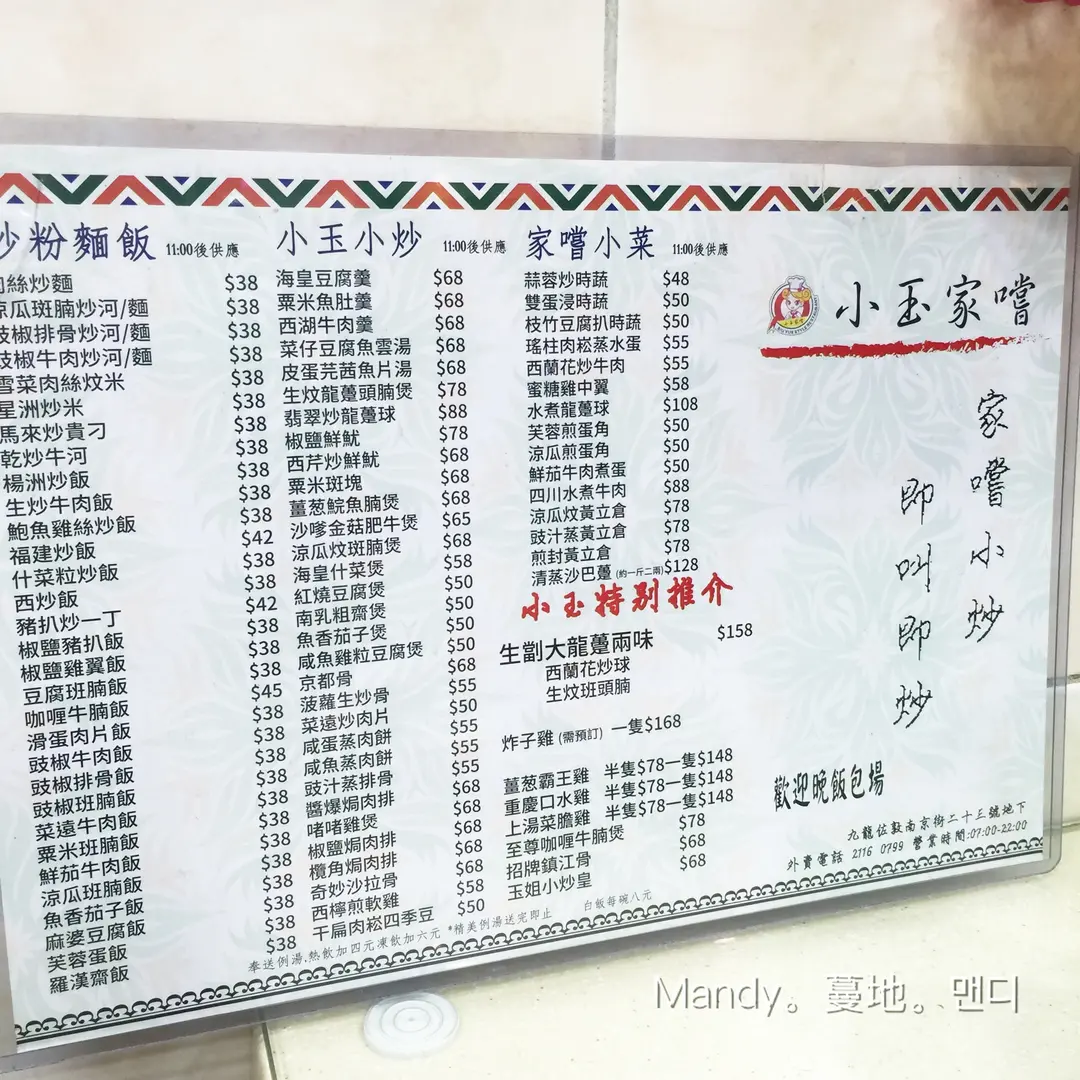 炒粉麵飯 11:00後供應
肉絲炒麵 $38
涼瓜斑腩炒河/麵 $38
豉椒排骨炒河/麵 $38
豉椒牛肉炒河/麵 $38
雪菜肉絲炆米 $38
星洲炒米 $38
馬來炒貴刁 $38
乾炒牛河 $38
楊洲炒飯 $38
生炒牛肉飯 $38
鮑魚雞絲炒飯 $38
福建炒飯 $42
什菜粒炒飯 $38
西炒飯 $38
豬扒炒一丁 $42
椒鹽豬扒飯 $38
椒鹽雞翼飯 $38
豆腐班腩飯 $38
咖喱牛腩飯 $45
滑蛋肉片飯 $38
豉椒牛肉飯 $38
豉椒排骨飯 $38
豉椒班腩飯 $38
菜遠牛肉飯 $38
粟米班腩飯 $38
鮮茄牛肉飯 $38
涼瓜班腩飯 $38
魚香茄子飯 $38
麻婆豆腐飯 $38
芙蓉蛋飯 $38
羅漢齋飯 $38
小玉小炒 11:00後供應
海皇豆腐羹 $68
粟米魚肚羹 $68
西湖牛肉羹 $68
菜仔豆腐魚雲湯 $68
皮蛋芫茜魚片湯 $68
生炆龍躉頭腩煲 $78
翡翠炒龍躉球 $88
椒鹽鮮魷 $78
西芹炒鮮魷 $68
粟米斑塊 $68
薑葱鯇魚腩煲 $68
沙嗲金菇肥牛煲 $65
涼瓜炆斑腩煲 $68
海皇什菜煲 $58
紅燒豆腐煲 $50
南乳粗齋煲 $50
魚香茄子煲 $50
咸魚雞粒豆腐煲 $50
京都骨 $68
菠蘿生炒骨 $55
菜遠炒肉片 $50
咸蛋蒸肉餅 $55
咸魚蒸肉餅 $55
豉汁蒸排骨 $55
醬爆焗肉排 $68
啫啫雞煲 $68
椒鹽焗肉排 $68
欖角焗肉排 $68
奇妙沙拉骨 $68
西檸煎軟雞 $58
干扁肉崧四季豆 $50
家嚐小菜 11:00後供應
蒜蓉炒時蔬 $48
雙蛋浸時蔬 $50
枝竹豆腐扒時蔬 $50
瑤柱肉崧蒸水蛋 $55
西蘭花炒牛肉 $55
蜜糖雞中翼 $58
水煮龍躉球 $108
芙蓉煎蛋角 $50
涼瓜煎蛋角 $50
鮮茄牛肉煮蛋 $50
四川水煮牛肉 $88
涼瓜炆黃立倉 $78
豉汁蒸黃立倉 $78
煎封黃立倉 $78
清蒸沙巴躉 (約一斤二兩) $128
小玉特別推介
生劏大龍躉兩味 $158
西蘭花炒球
生炆班頭腩
炸子雞 (需預訂) 一隻$168
薑葱霸王雞 半隻$78一隻$148
重慶口水雞 半隻$78一隻$148
上湯菜膽雞 半隻$78一隻$148
至尊咖喱牛腩煲 $78
招牌鎮江骨 $68
玉姐小炒皇 $68
奉送例湯.熱飲加四元凍飲加六元 *精美例湯送完即止 白飯每碗八元
小玉家嚐
家嚐小炒
即叫即炒
歡迎晚飯包場
九龍佐敦南京街二十三號地下
外賣電話 2116 0799 營業時間:07:00-22:00
Mandy。蔓地。맨디